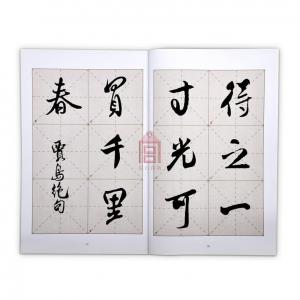 得之一
寸光可
買千里
春
賈島絶句